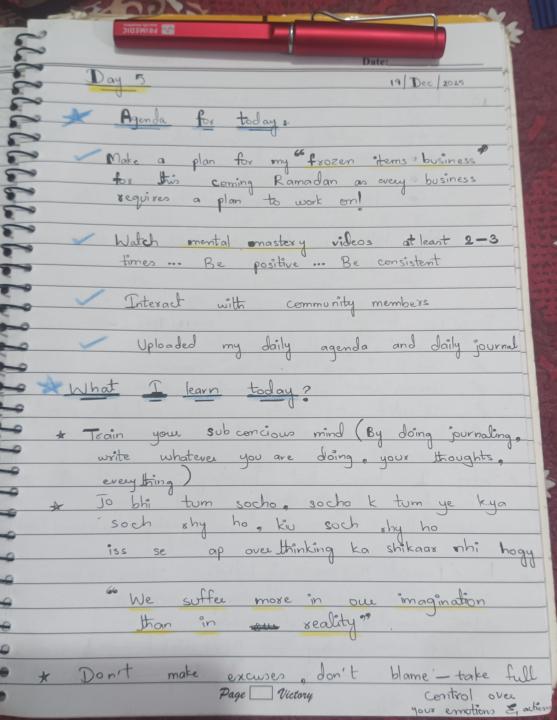 PRIMEDIC
Date:
Day 5
19/Dec/2025
Agenda for today.
Make a plan for my "frozen items business"
for this coming Ramadan as every business
requires a plan to work on!
Watch mental mastery videos at least 2-3
times ... Be positive ... Be consistent
Interact with community members
Uploaded my daily agenda and daily journal
What I learn today?
Train your sub concious mind (By doing journaling,
write whatever you are doing, your thoughts,
everything)
Jo bhi tum socho, socho k tum ye kya
soch rhy ho, kiu soch rhy ho
iss se ap over thinking ka shikaar nhi hogy
"We suffer more in our imagination
than in reality"
Don't make excuses, don't blame - take full
control over
your emotions & actions
Page Victory